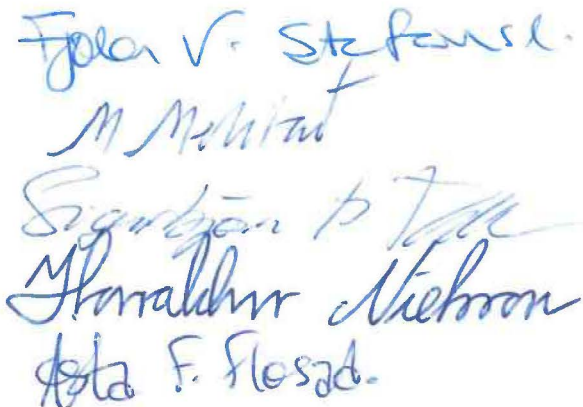 Fjóla V. Stefánsd.
M
Sigurbjörn Þ
Haraldur Níelsson
Ásta F. Flosad.